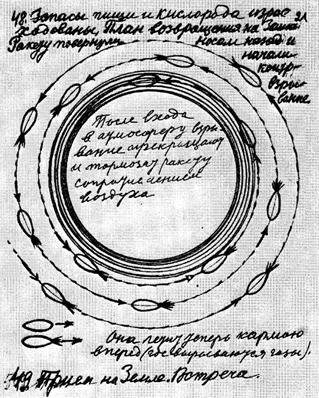 48. Запасы пищи и кислорода израс
ходованы. План возвращения на Землю
Ракету повернули носом назад и
начали
контр
взры
вание
После входа
в атмосферу взры
вание прекращают
и тормозят ракету
сопротивлением
воздуха
Они летят теперь кормою
вперед (где вырываются газы).
49 Прием на Земле. Встреча.